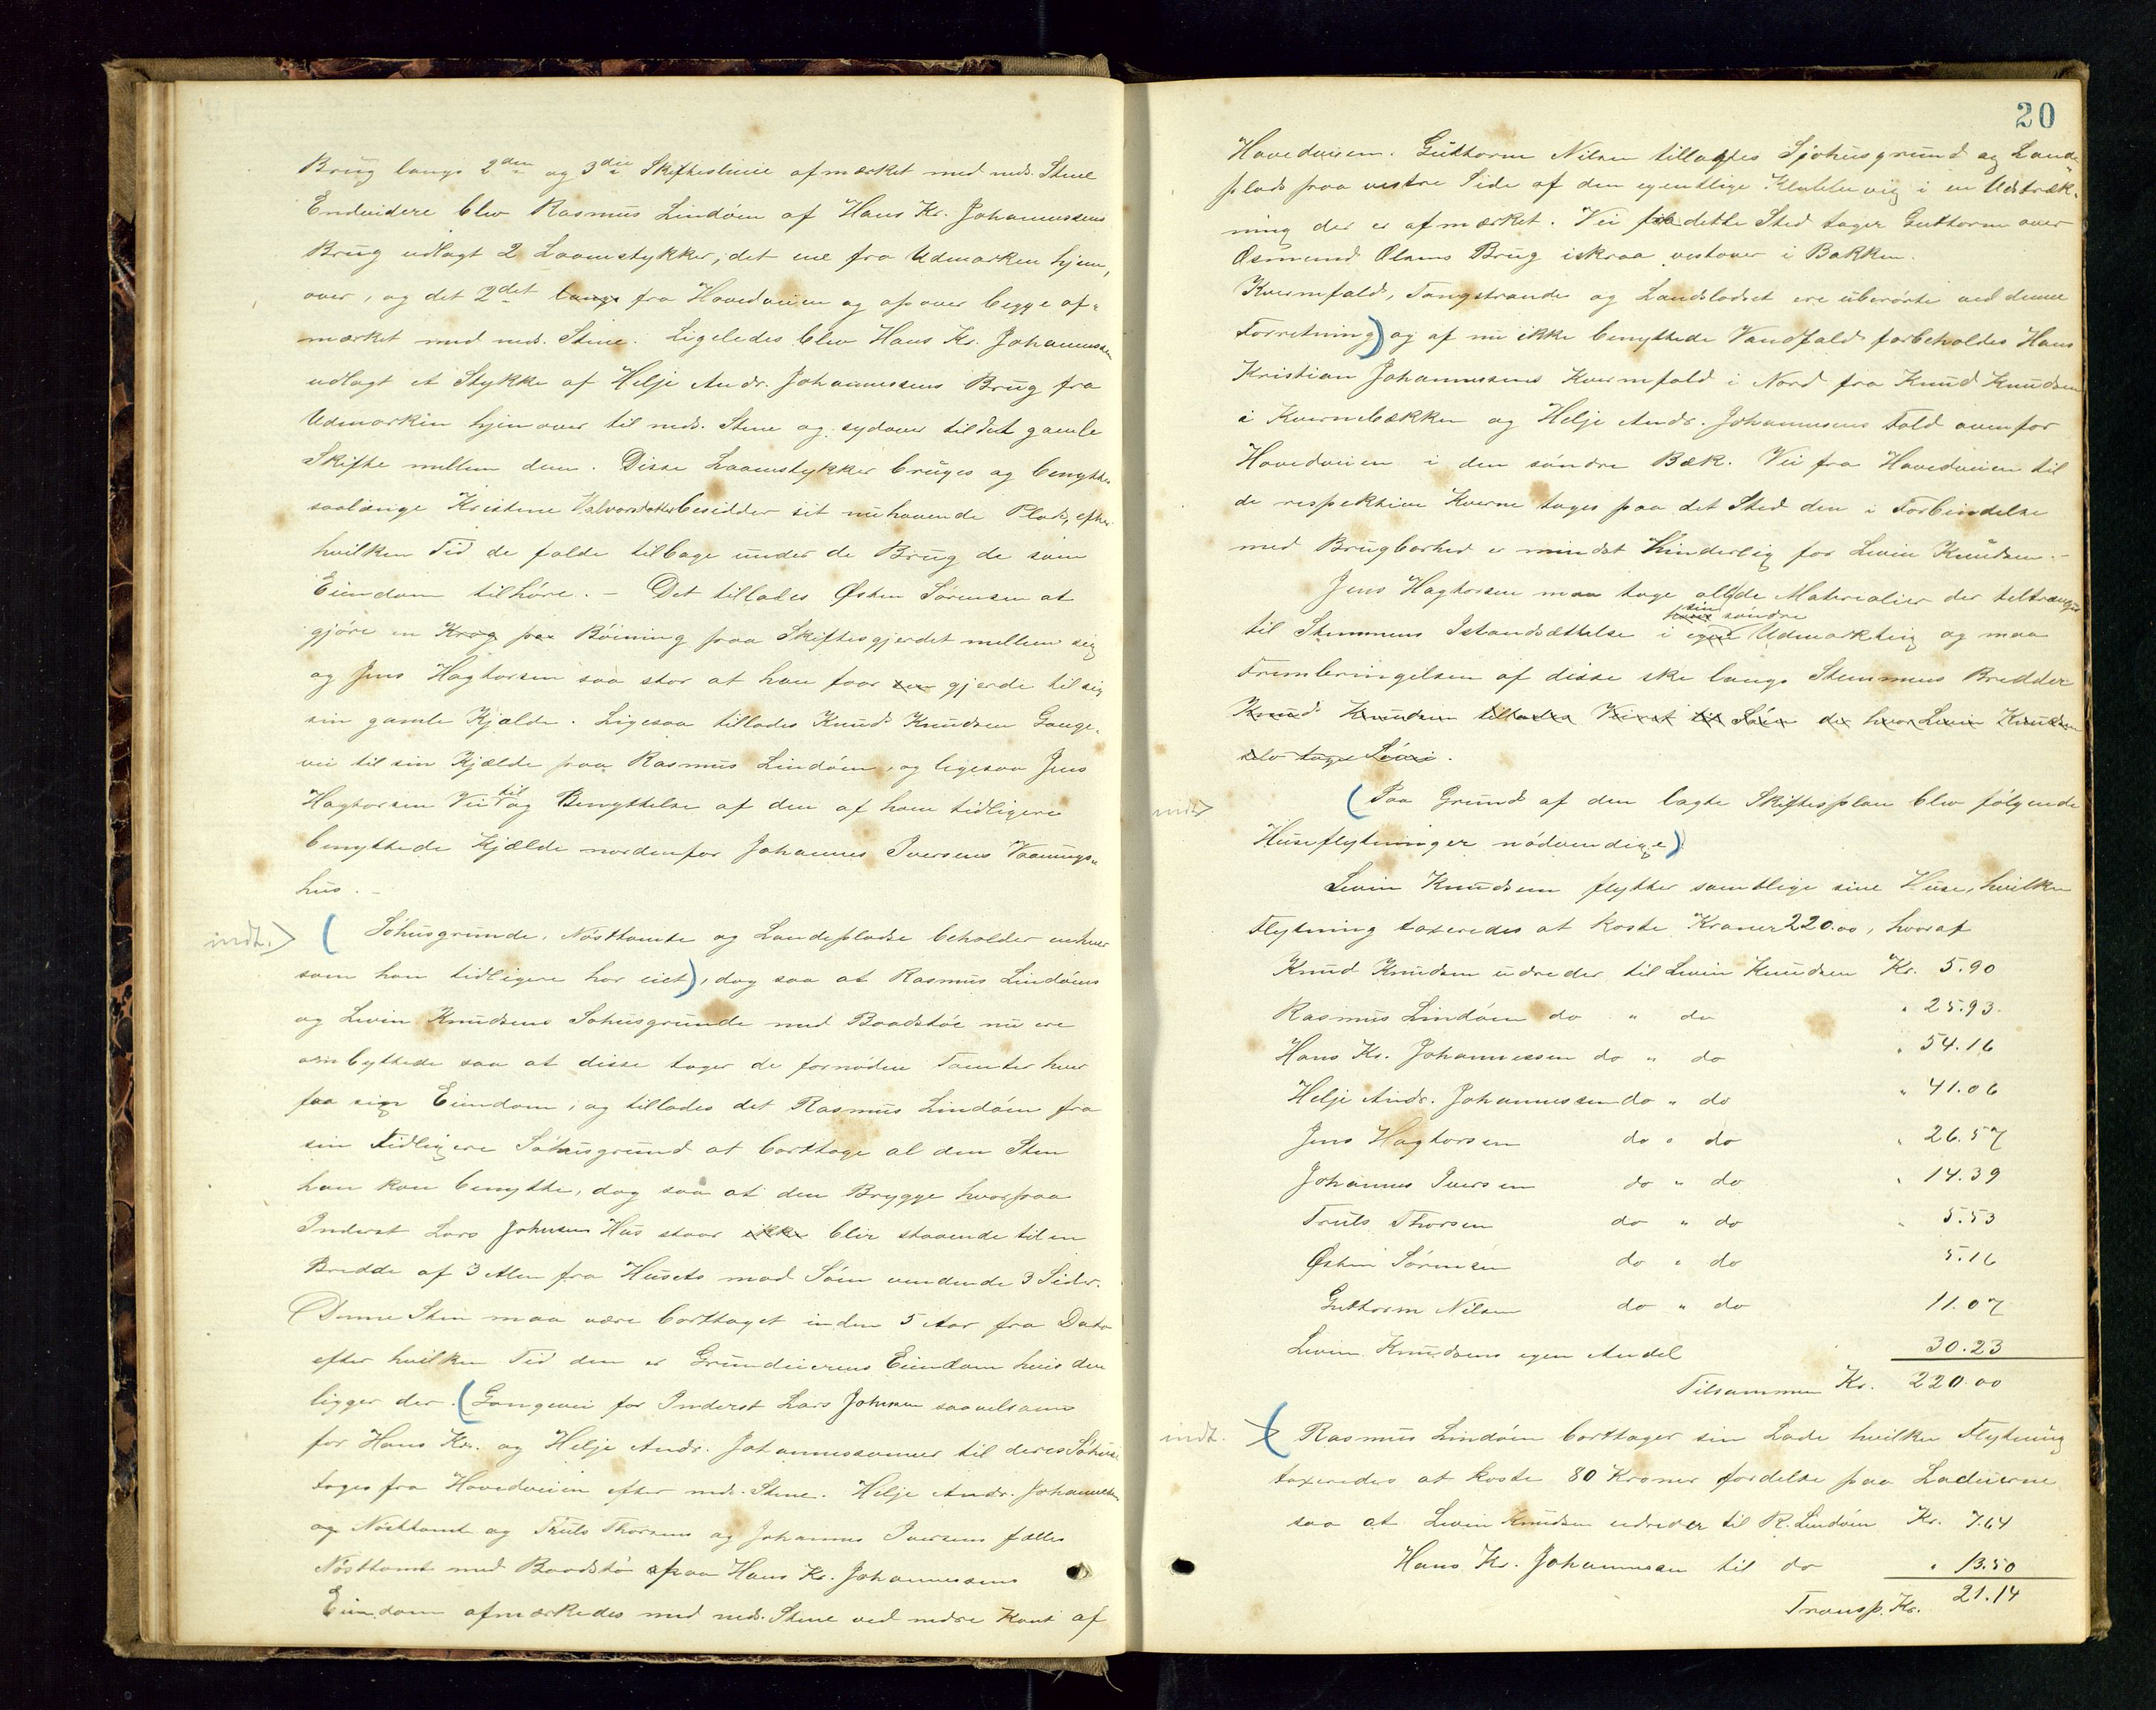 Brug langs 2den og 3die Skifteslinie afmærket med neds. Stene
Endvidere blev Rasmus Lindøen af Hans Kr. Johannessens
Brug udlagt 2 Laanestykker, det ene fra Udmarken hjem,
over, og det 2det langs fra Hovedveien og opover begge af-
mærket med neds. Stene. Ligeledes blev Hans Kr. Johannessen
udlagt et Stykke af Helje Andr. Johannessens Brug fra
Udmarken hjemover til neds. Stene og sydover til det gamle
Skifte mellem dem. Disse Laanestykker bruges og benyttes
saalænge Kristine Halvorsdatter besidder sit nuhavende Plads, efter
hvilken Tid de falde tilbage under de Brug de som
Eiendom tilhøre. – Det tillades Østen Sørensen at
gjøre en Krog paa Bøining paa Skiftesgjerdet mellem sig
og Jens Hagtorsen saa stor at han faar gjerde til sig
sin gamle Kjælde. Ligesaa tillades Knud Knudsen Gange-
vei til sin Kjælde paa Rasmus Lindøen, og ligesaa Jens
Hagtorsen Vei til og Benyttelse af den af ham tidligere
benyttede Kjælde nordenfor Johannes Iversens Vaanings-
hus. –
indt. > ( Søhusgrunde, Nøsttomte og Landepladse beholder enhver
som han tidligere har eiet), dog saa at Rasmus Lindøens
og Levin Knudsens Søhusgrunde med Baadstøe nu ere
ombyttede saa at disse tager de fornødne Tomter hver
paa sin Eiendom, og tillades det Rasmus Lindøen fra
sin tidligere Søhusgrund at borttage al den Sten
han kan benytte, dog saa at den Brygge hvorpaa
Inderst Lars Johnsens Hus staar ikke blir staaende til en
Bredde af 3 Alen fra Husets mod Søen vendende 3 Sider.
(Denne Sten maa være borttaget inden 5 Aar fra Dato
efter hvilken Tid den er Grundeierens Eiendom hvis den
ligger der. (Gangevei for Inderst Lars Johnsen saavelsom
for Hans Kr. og Helje Andr. Johannessønner til deres Søhuse
tages fra Hovedveien efter neds. Stene. Helje Andr. Johannessen
og Nøsttomt og Truls Thorsens og Johannes Iversens fælles
Nøsttomt med Baadstø paa Hans Kr. Johannessens
Eiendom afmærkedes med neds. Stene ved nedre Kant af
20
Hovedveien. Guttorm Nilsen tillagtes Sjøhusgrund og Lande-
plads paa vestre Side af den egentlige i en Udstræk-
ning der er afmærket. Vei til dette Sted tager Guttorm over
Osmund Olsens Brug iskraa vestover i Bakken.
Kvernefald, Tangstrande og Landslodset ere uberørte ved denne
Forretning) og af nu ikke benyttede Vandfald forbeholdes Hans
Kristian Johannessens Kvernfald i Nord fra Knud Knudsen
i Kvernebækken og Helje Andr. Johannesens Fald ovenfor
Hovedveien i den søndre Bæk. Vei fra Hovedveien til
de respektive Kverne tages paa det Sted den i Forbindelse
med Brugbarhed er mindst hinderlig for Levin Knudsen. –
Jens Hagtorsen maa tage alle de Materialier der tiltrænges
hans sin søndre
til Stemmens Istandsættelse i egen Udmarkteig og maa
Frembringelsen af disse ske langs Stemmens Bredder
Knud Knudsen tillades Veiret til Søen der hvor Levin Knudsen
selv tager Søvei.
indt > ( Paa Grund af den lagte Skiftesplan blev følgende
Huseflytninger nødvendige)
Levin Knudsen flytter samtlige sine Huse, hvilken
Flytning taxeredes at koste Kroner 220.00, hvoraf
Knud Knudsen udreder til Levin Knudsen Kr. 5.90
Rasmus Lindøen do " do " 25.93.
Hans Kr. Johannessen do " do " 54.16
Helje Andr. Johannessen do " do " 41.06
Jens Hagtorsen do " do " 26.57
Johannes Iversen do " do " 14.39
Truls Thorsen do " do " 5.53
Østen Sørensen do " do 5.16
Guttorm Nilsen do " do 11.07
Levin Knudsens egen Andel 30.23
Tilsammen Kr. 220.00
indt. > ( Rasmus Lindøen borttager sin Lade hvilken Flytning
taxeredes at koste 80 Kroner fordelse paa Lodeierne
saa at Levin Knudsen udreder til R. Lindøen Kr. 7.64
Hans Kr. Johannesen til do " 13.50
Transp. Kr. 21.14